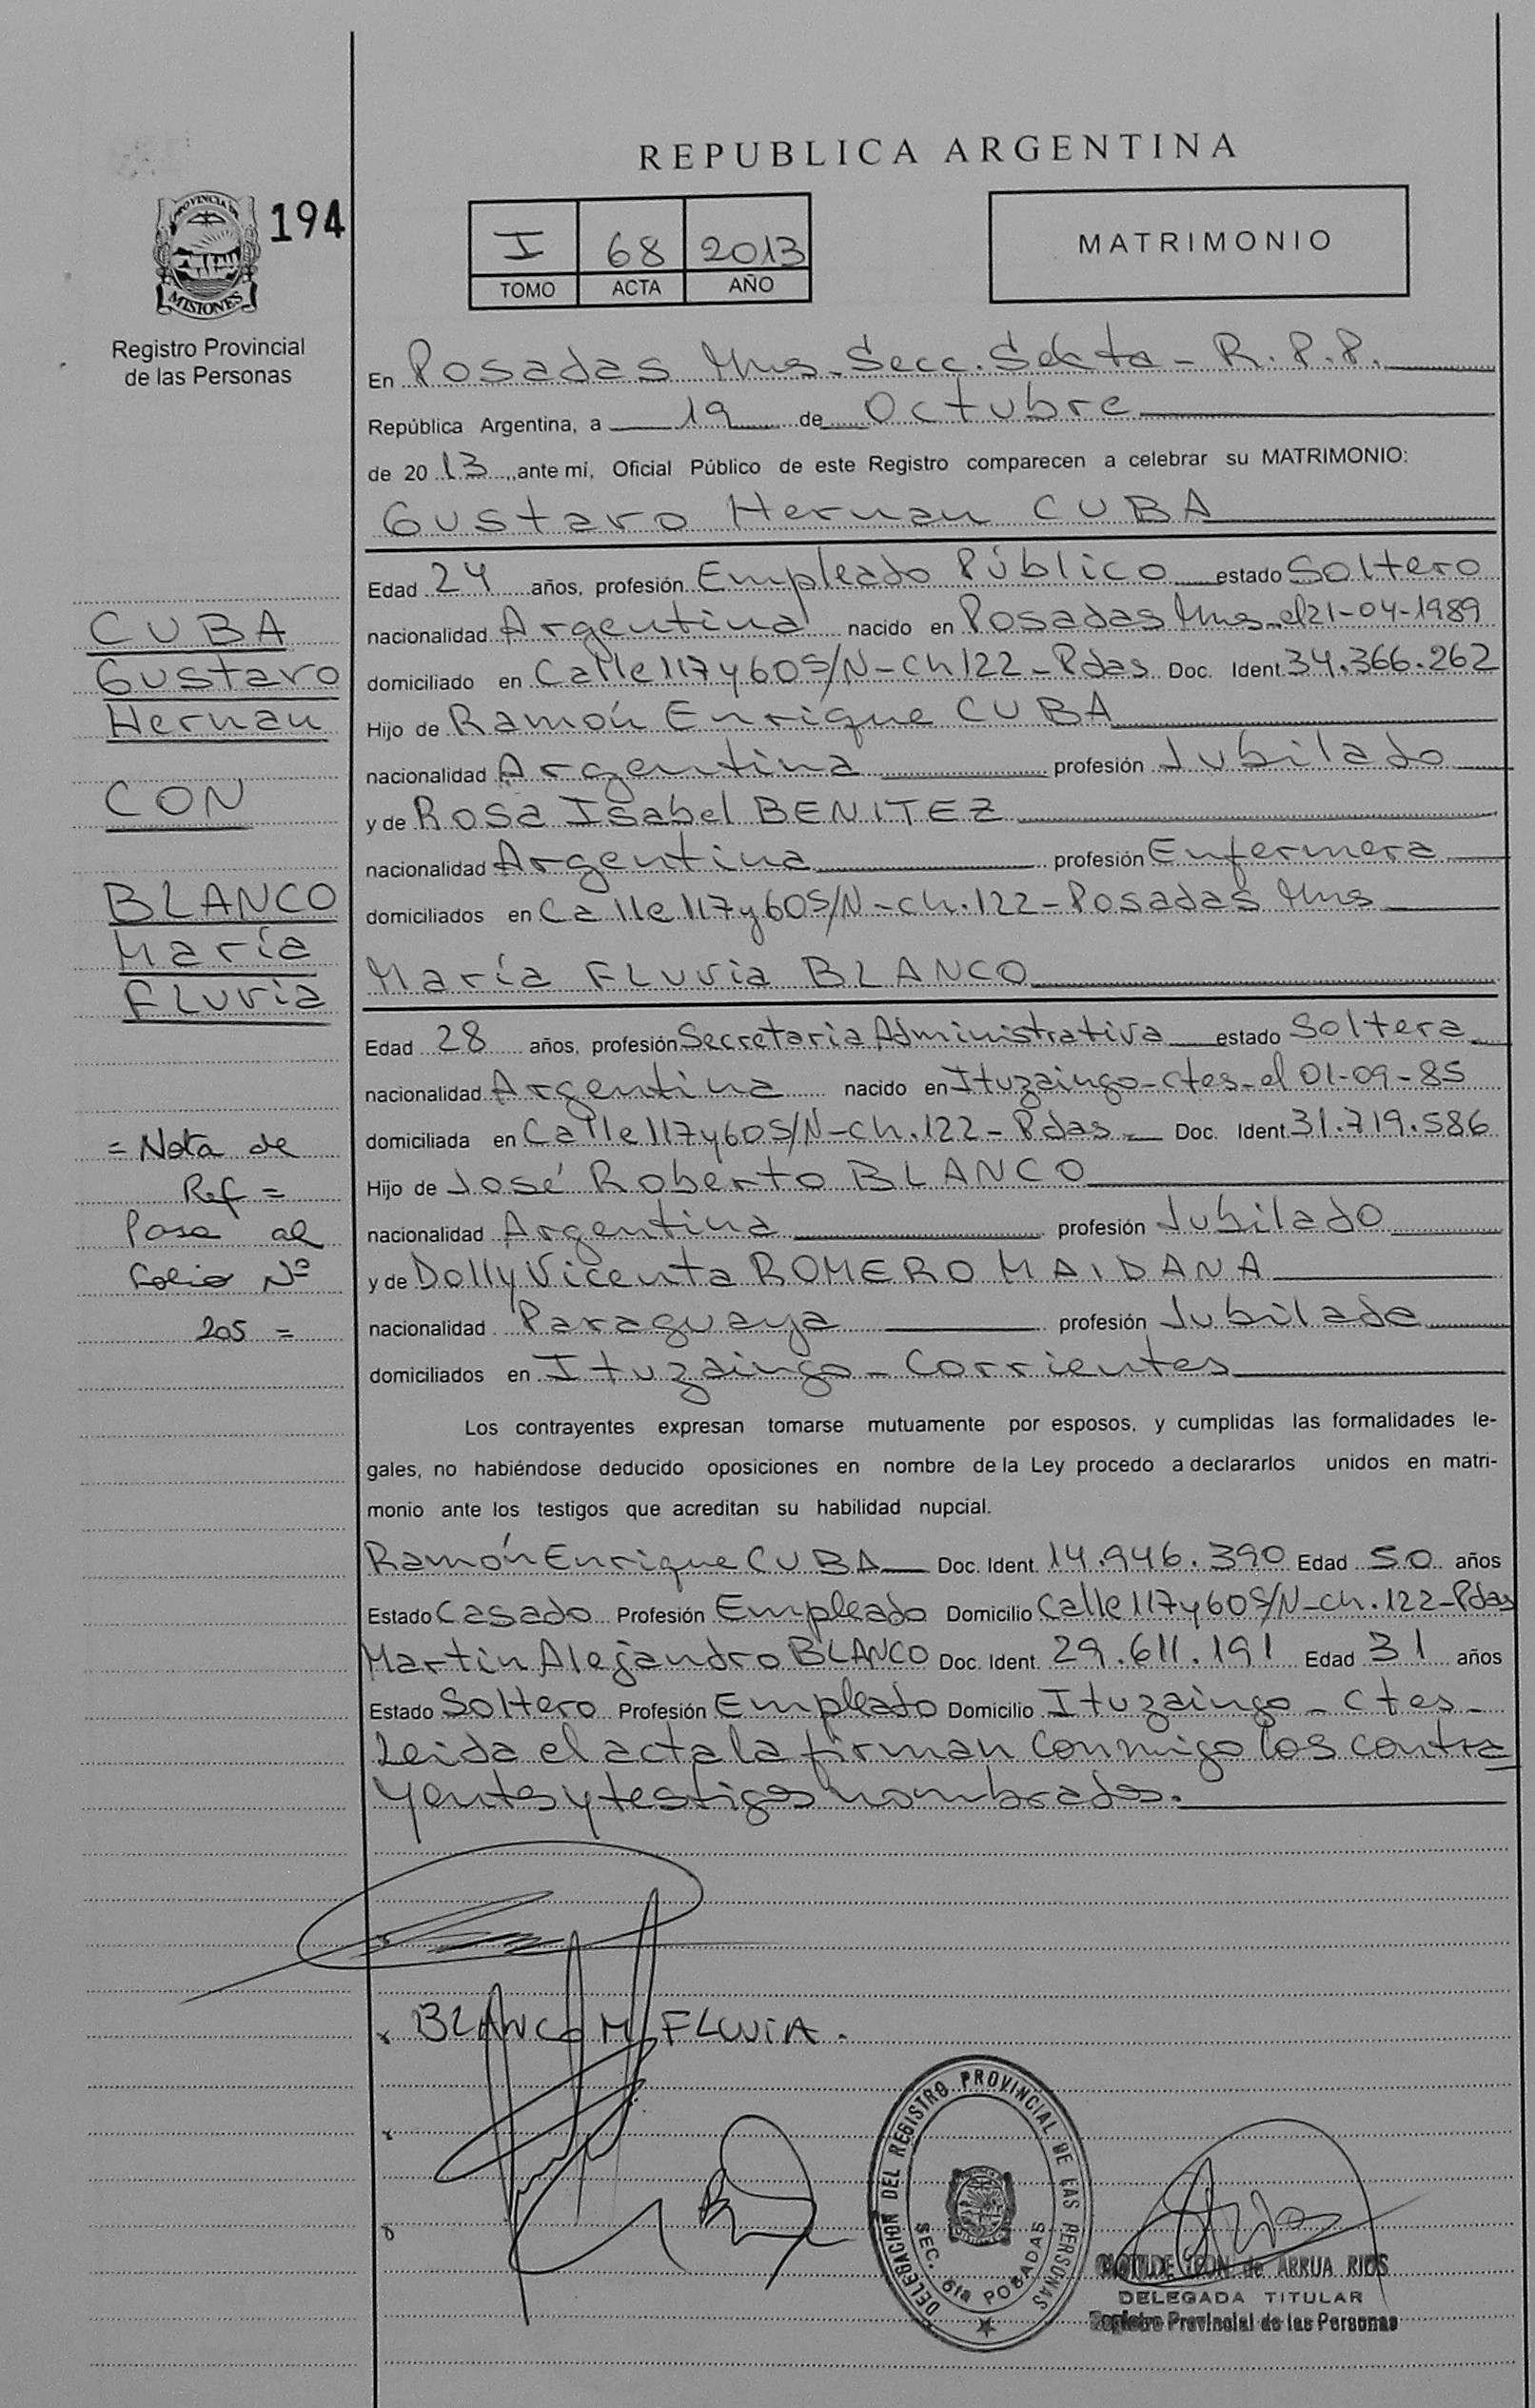 REPUBLICA ARGENTINA
PROVINCIA DE
MISIONES
194
Registro Provincial
de las Personas
I 68 2013
TOMO ACTA AÑO
MATRIMONIO
En Posadas Mns-Secc. Sexta - R.P.P.
República Argentina, a 19 de Octubre
de 2013, ante mi, Oficial Público de este Registro comparecen a celebrar su MATRIMONIO:
Gustavo Hernan CUBA
Edad 24 años, profesión Empleado Público estado Soltero
nacionalidad Argentina nacido en Posadas Mns-el 21-04-1989
domiciliado en Calle 117 y 60 S/N-Ch 122-Pdas Doc. Ident. 34.366.262
Hijo de Ramón Enrique CUBA
nacionalidad Argentina profesión Jubilado
y de Rosa Isabel BENITEZ
nacionalidad Argentina profesión Enfermera
domiciliados en Calle 117 y 60 S/N-ch.122-Posadas Mns
María Fluvia BLANCO
Edad 28 años, profesión Secretaria Administrativa estado Soltera
nacionalidad Argentina nacido en Ituzaingo-ctes-el 01-09-85
domiciliada en Calle 117 y 60 S/N-ch.122-Pdas- Doc. Ident. 31.719.586
Hijo de José Roberto BLANCO
nacionalidad Argentina profesión Jubilado
y de Dolly Vicenta ROMERO MAIDANA
nacionalidad Paraguaya profesión Jubilada
domiciliados en Ituzaingo-Corrientes
Los contrayentes expresan tomarse mutuamente por esposos, y cumplidas las formalidades le-
gales, no habiéndose deducido oposiciones en nombre de la Ley procedo a declararlos unidos en matri-
monio ante los testigos que acreditan su habilidad nupcial.
Ramón Enrique CUBA Doc. Ident. 14.946.390 Edad 50 años
Estado Casado Profesión Empleado Domicilio Calle 117 y 60 S/N-ch.122-Pdas
Martin Alejandro BLANCO Doc. Ident. 29.611.191 Edad 31 años
Estado Soltero Profesión Empleado Domicilio Ituzaingo-ctes-
Leida el acta la firman conmigo los contra
yentes y testigos nombrados.
CUBA
Gustavo
Hernan
CON
BLANCO
María
Fluvia
= Nota de
Ref =
Pasa al
Folio Nº
205 =
BLANCO M FLUVIA.
DELEGACION DEL REGISTRO PROVINCIAL DE LAS PERSONAS
SEC. 6ta POSADAS
CLOTILDE LEON de ARRUA RIOS
DELEGADA TITULAR
Registro Provincial de las Personas